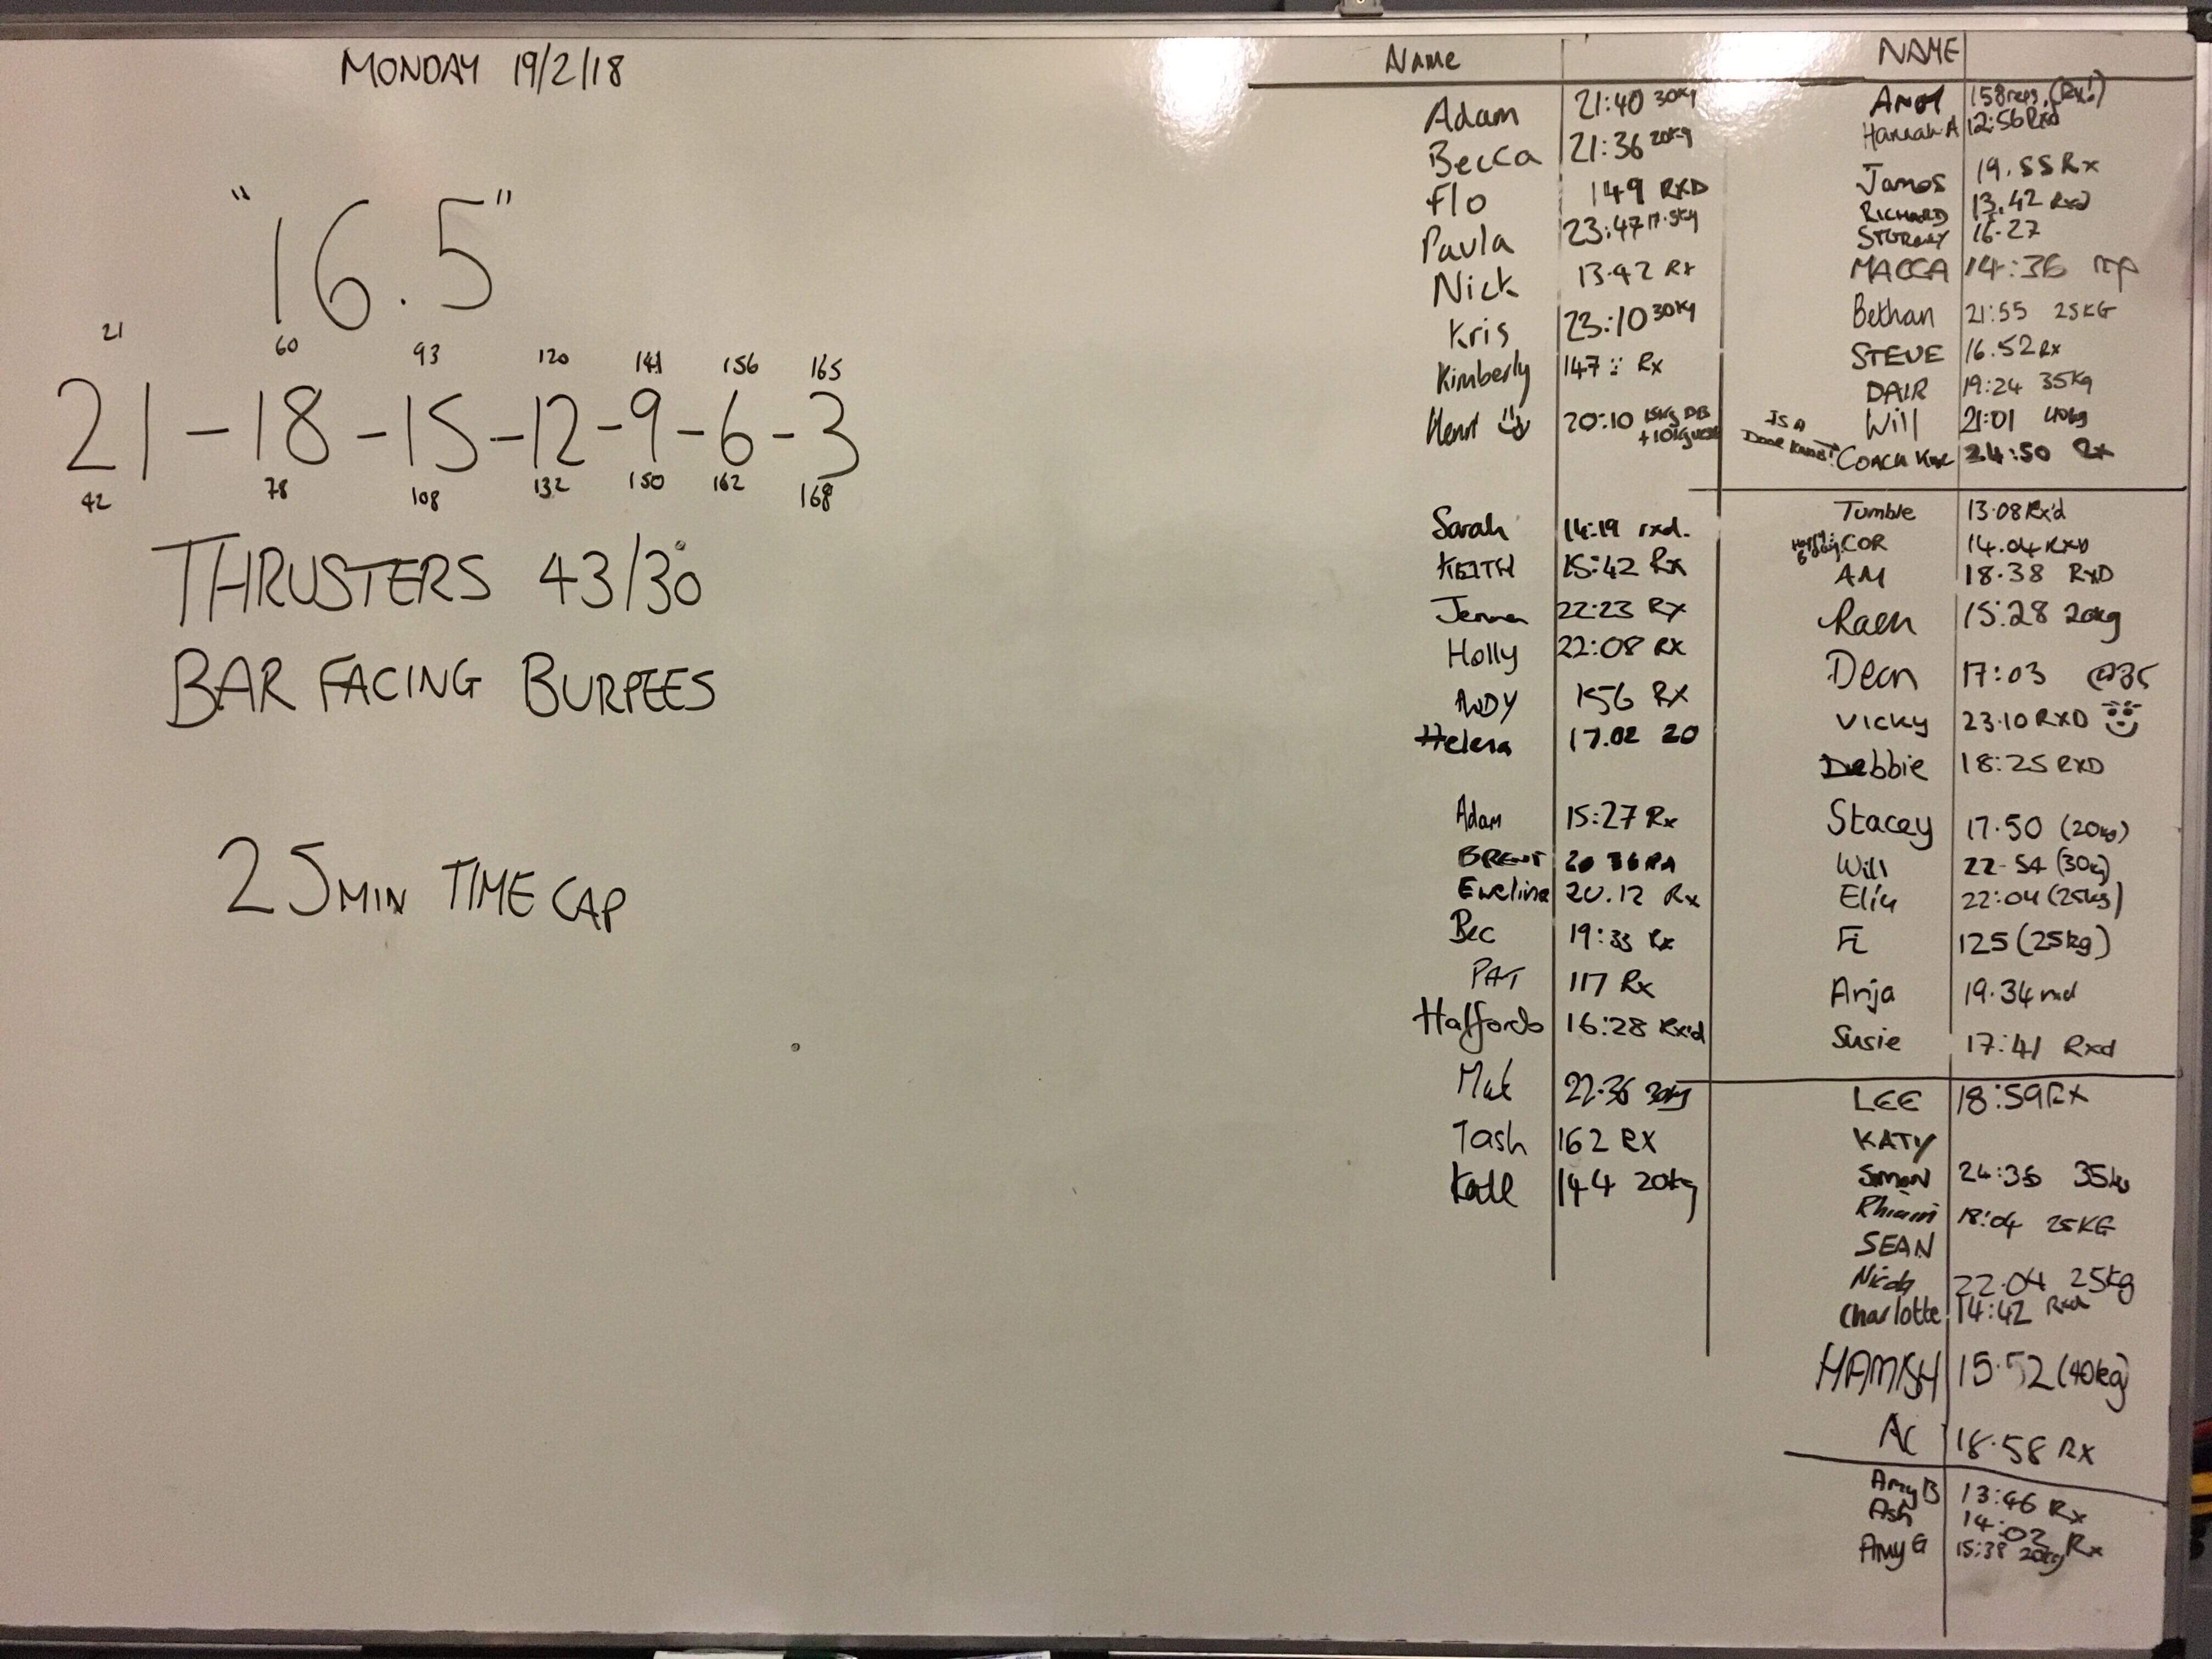 MONDAY 19/2/18
"16.5"
21 60 93 120 141 156 165
21-18-15-12-9-6-3
42 78 108 132 150 162 168
THRUSTERS 43/30
BAR FACING BURPEES
25 MIN TIME CAP
Name
Adam 21:40 30kg
Becca 21:36 20kg
Flo 149 RXD
Paula 23:47 17.5kg
Nick 13.42 Rx
Kris 23:10 30kg
Kimberly 147 :: Rx
Henri 20:10 15kg DB
+10kg
Sarah 14:19 rxd.
KEITH 15:42 Rx
Jenna 22:23 RX
Holly 22:08 RX
ANDY 156 RX
Helena 17.02 20
Adam 15:27 Rx
BRENT 20 36 RX
Ewelina 20.12 Rx
Bec 19:33 Rx
PAT 117 Rx
Haffords 16:28 Rx'd
22:36 30kg
Tash 162 RX
144 20kg
NAME
158 reps. (Rx!)
Hannah A 12:56 Rxd
James 19.55 Rx
RICHARD 13.42 Rxd
16.27
MACCA 14:36
Bethan 21:55 25KG
STEVE 16.52 Rx
DAIR 19:24 35kg
Will 21:01 40kg
IS A
COACH 24:50 Rx
Tumble 13.08 Rx'd
COR 14.04 RXD
AM 18.38 RXD
15:28 20kg
Dean 17:03 @35
Vicky 23.10 RXD
Debbie 18:25 RXD
Stacey 17.50 (20kg)
Will 22-54 (30kg)
22:04 (25kg)
Fi 125 (25kg)
Anja 19.34 rxd
Susie 17:41 Rxd
LEE 18:59 RX
KATY
SIMON 24:36 35kg
18:04 25KG
SEAN
Nicola 22.04 25kg
Charlotte 14:42 Rxd
HAMISH 15.52 (40kg)
AC 18.58 RX
Amy B 13:46 Rx
Ash 14:02 Rx
Amy G 15:38 20kg